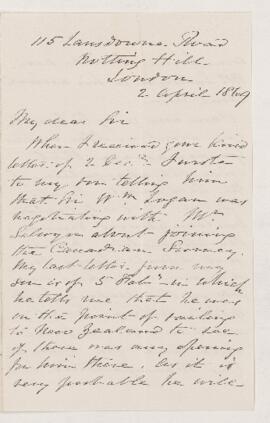 115 Lansdowne Road
Notting Hill
London
2 April 1869
My dear Sir
When I received your kind
letter of 2 Decr. I wrote
to my son telling him
that Sir Wm Logan was
negotiating with Mr
Selwyn about joining
the Canadian Survey.
My last letter from my
son is of 5 Feby in which
he tells me that he was
on the point of sailing
to New Zealand to see
if there was any opening
for him there. As it is
very probable he will